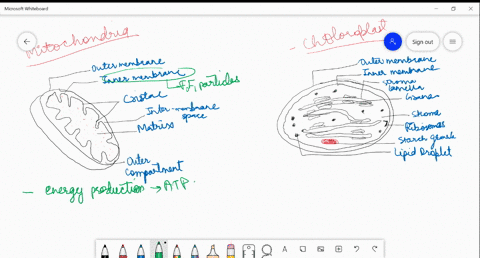 Microsoft Whiteboard
Mitochondria
Outer membrane
Inner membrane
F₀F₁ particles
Cristae
Inter-membrane
space
Matrix
Outer
compartment
- energy production → ATP.
- Choloroplast
Sign out
Outer membrane
Inner membrane
lamella
Ribosomes
Lipid Droplet